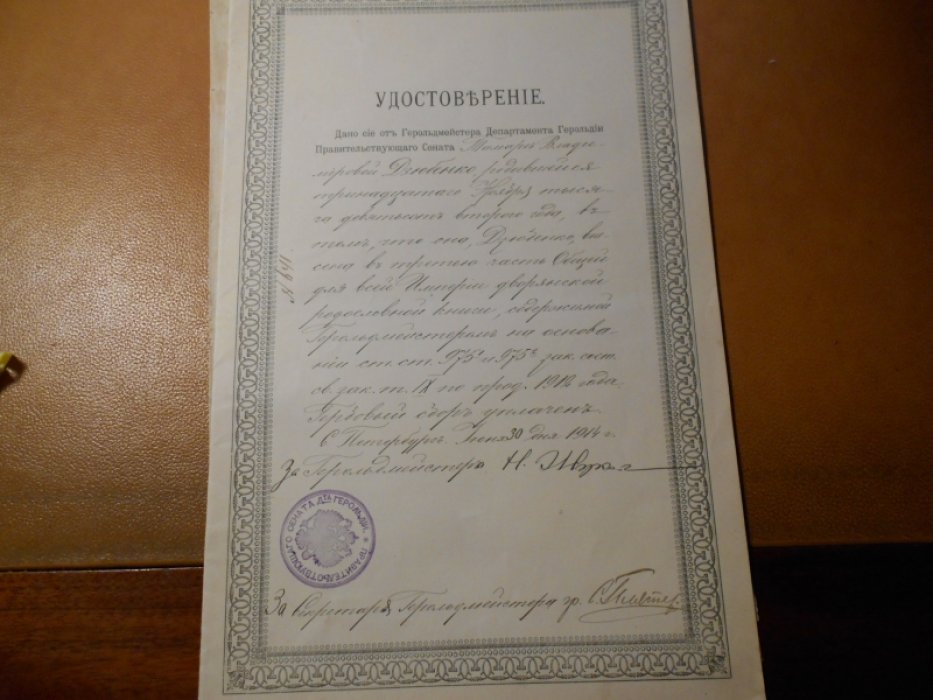 УДОСТОВѢРЕНІЕ.
Дано сіе отъ Герольдмейстера Департамента Герольдіи
Правительствующаго Сената Тамарѣ Влади-
міровой Дзюбенко, родившейся
тринадцатаго Ноября тыся-
ча девятьсотъ второго года, въ
томъ, что она, Дзюбенко, вне-
сена въ третью часть Общей
для всей Имперіи дворянской
родословной книги, содержимой
Герольдмейстеромъ на основа-
ніи ст. ст. 975¹ и 975² зак. сост.
св. зак. т. IX по прод. 1912 года.
Гербовый сборъ уплаченъ.
С Петербургъ. Іюня 30 дня 1914 г.
За Герольдмейстера Н.
№ 641
ПРАВИТЕЛЬСТВУЮЩАГО СЕНАТА ДТА ГЕРОЛЬДІИ
За Секретаря Герольдмейстера гр. С.